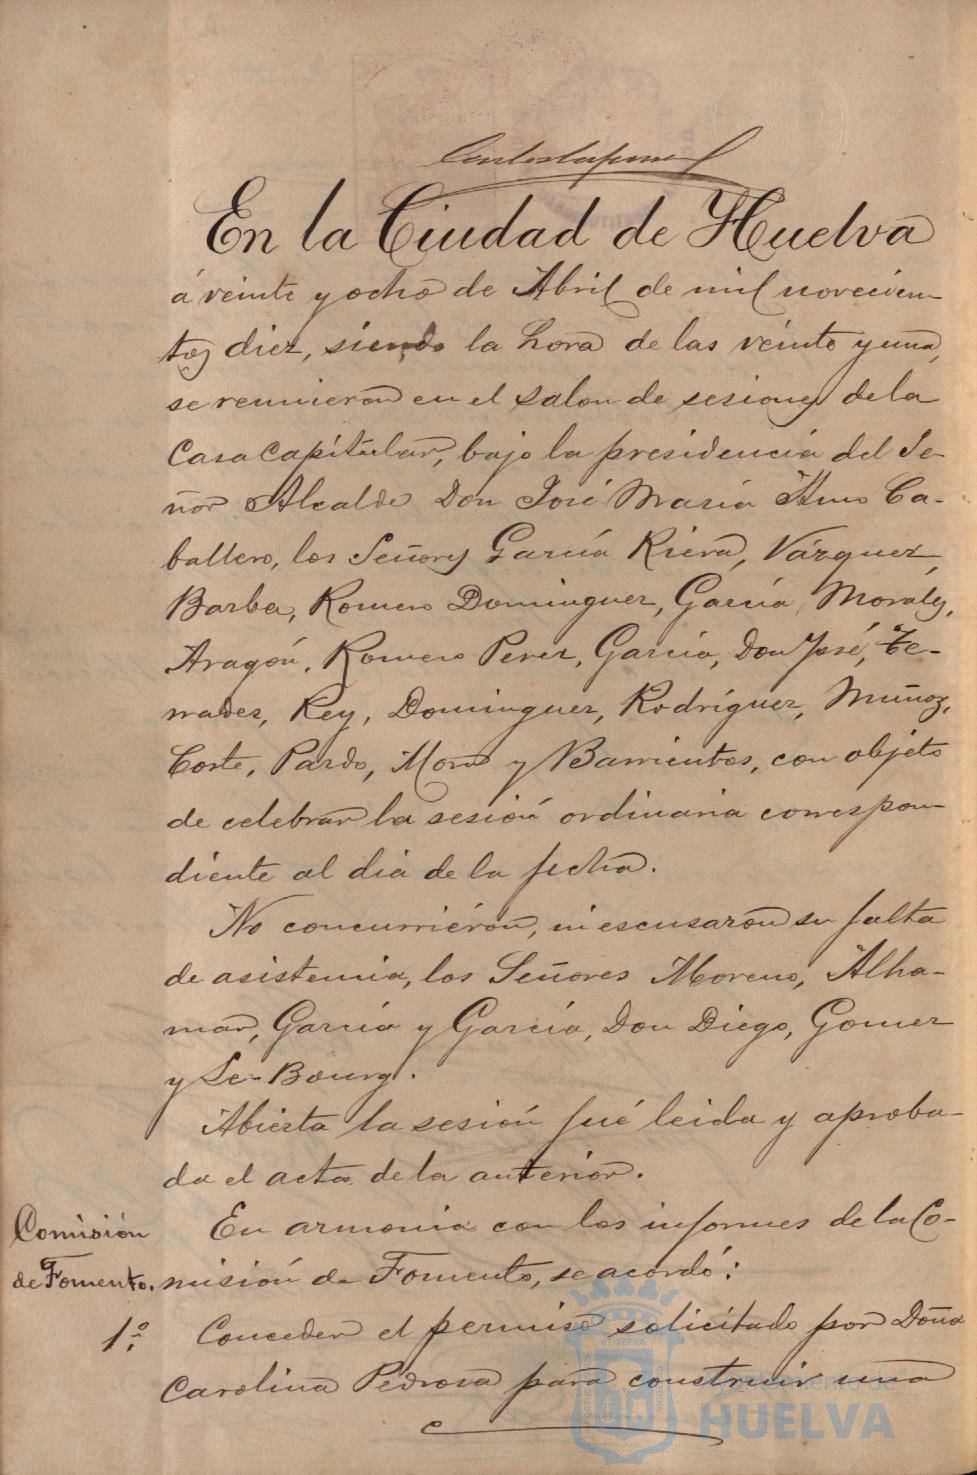 En la Ciudad de Huelva
á veinte y ocho de Abril de mil novecien-
tos diez, siendo la hora de las veinte y una,
se reunieron en el salon de sesiones de la
Casa Capitular, bajo la presidencia del Se-
ñor Alcalde Don José María Amo Ca-
ballero, los Señores García Riera, Vázquez,
Barba, Romero Dominguez, García, Morales,
Aragón, Romero Perez, García, Don José, Te-
rrades, Rey, Dominguez, Rodríguez, Muñoz,
Corte, Pardo, Mora y Barrientos, con objeto
de celebrar la sesión ordinaria correspon-
diente al dia de la fecha.
No concurriéron, ni escusaron su falta
de asistencia, los Señores Moreno, Alha-
mar, García y García, Don Diego, Gomez
y Le-Bourg.
Abierta la sesión fué leida y aproba-
da el acta de la anterior.
Comisión
de Fomento.
En armonia con los informes de la Co-
misión de Fomento, se acordó:
1º
Conceder el permiso solicitado por Doña
Carolina Pedrosa para construir una
Ayuntamiento de
HUELVA